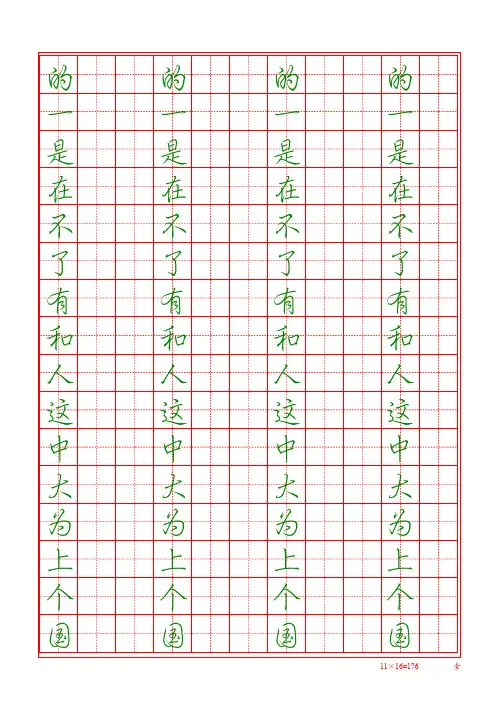 的 的 的 的
一 一 一 一
是 是 是 是
在 在 在 在
不 不 不 不
了 了 了 了
有 有 有 有
和 和 和 和
人 人 人 人
这 这 这 这
中 中 中 中
大 大 大 大
为 为 为 为
上 上 上 上
个 个 个 个
国 国 国 国
11×16=176